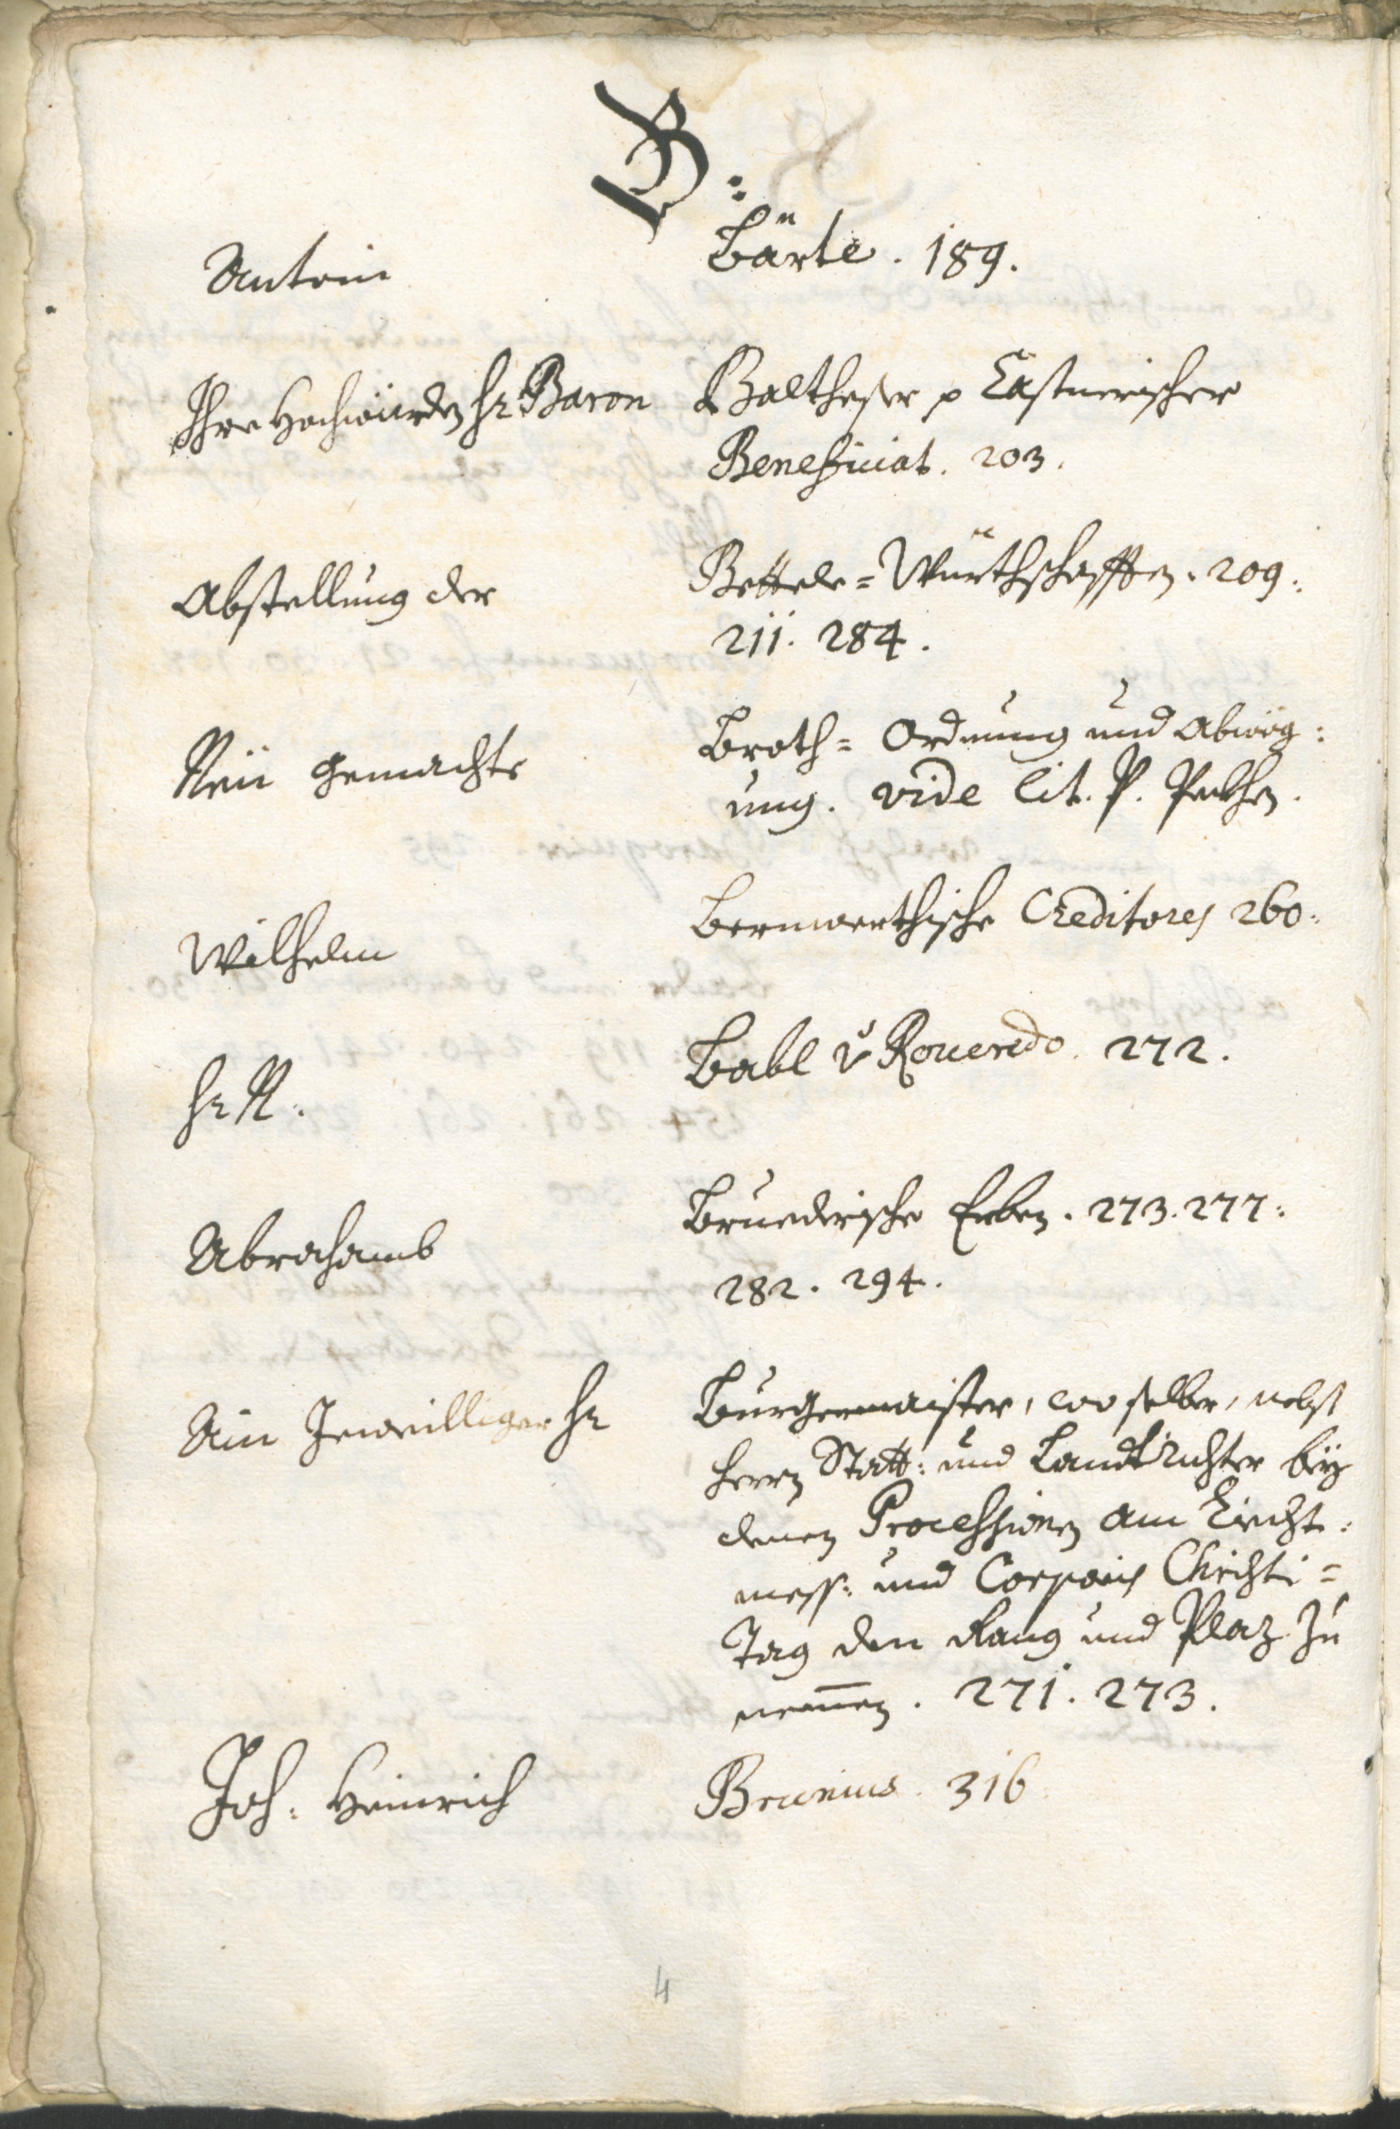 B:
Antoin Bärtl. 189.
Ihre Hochwürden Hr: Baron Balthasar p Castnerischer
Beneficiat. 203.
Abstellung der Bettele=Würthschafften. 209.
211. 284.
Neü gemachte Broth= Ordnung und Abwög:
ung. vide lit. P. Pekhen.
Wilhelm Bernwerthische Creditores 260.
Hr N: Babl v Roveredo. 272.
Abrahamb Bruederische Erben. 273. 277.
282. 294.
Ain Jeweilliger Hr Burgermaister, wo selber, nebst
Herrn Statt: und Landtrichter bey
denen Processionen am Liecht:
mess: und Corporis Christi=
Tag den Rang und Plaz zu
nemmen. 271. 273.
Joh: Heinrich Brunius. 316.
4